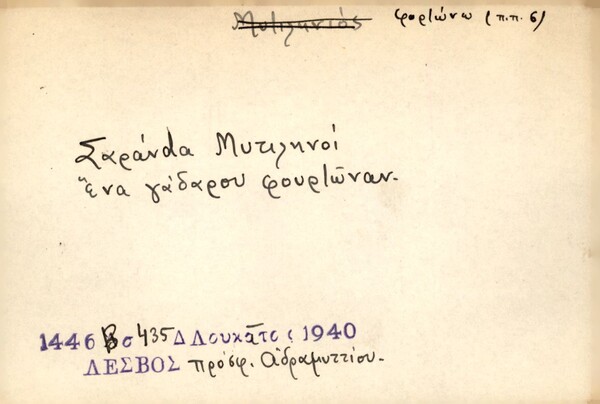 Μυτιληνιός φορτώνω (π.π. 6)
Σαράντα Μυτιληνοί
ἕνα γάδαρου φουρτῶναν.
1446 Β σ 435 Δ Λουκᾶτος 1940
ΛΕΣΒΟΣ πρόσφ. Ἀδραμυττίου.